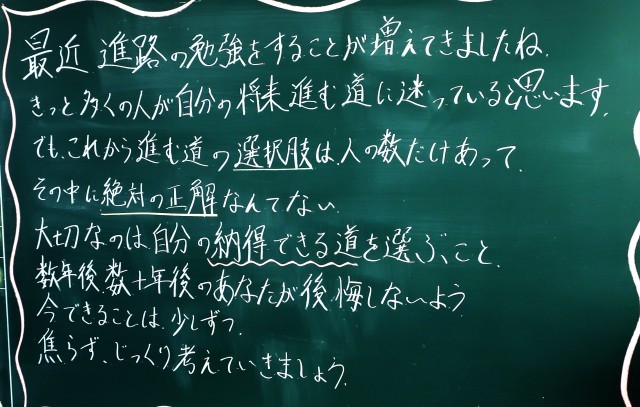 最近、進路の勉強をすることが増えてきましたね。
きっと多くの人が自分の将来進む道に迷っていると思います。
でも、これから進む道の選択肢は、人の数だけあって、
その中に絶対の正解なんてない。
大切なのは、自分の納得できる道を選ぶ、こと。
数年後、数十年後のあなたが後悔しないよう
今できることは、少しずつ、
焦らず、じっくり考えていきましょう。